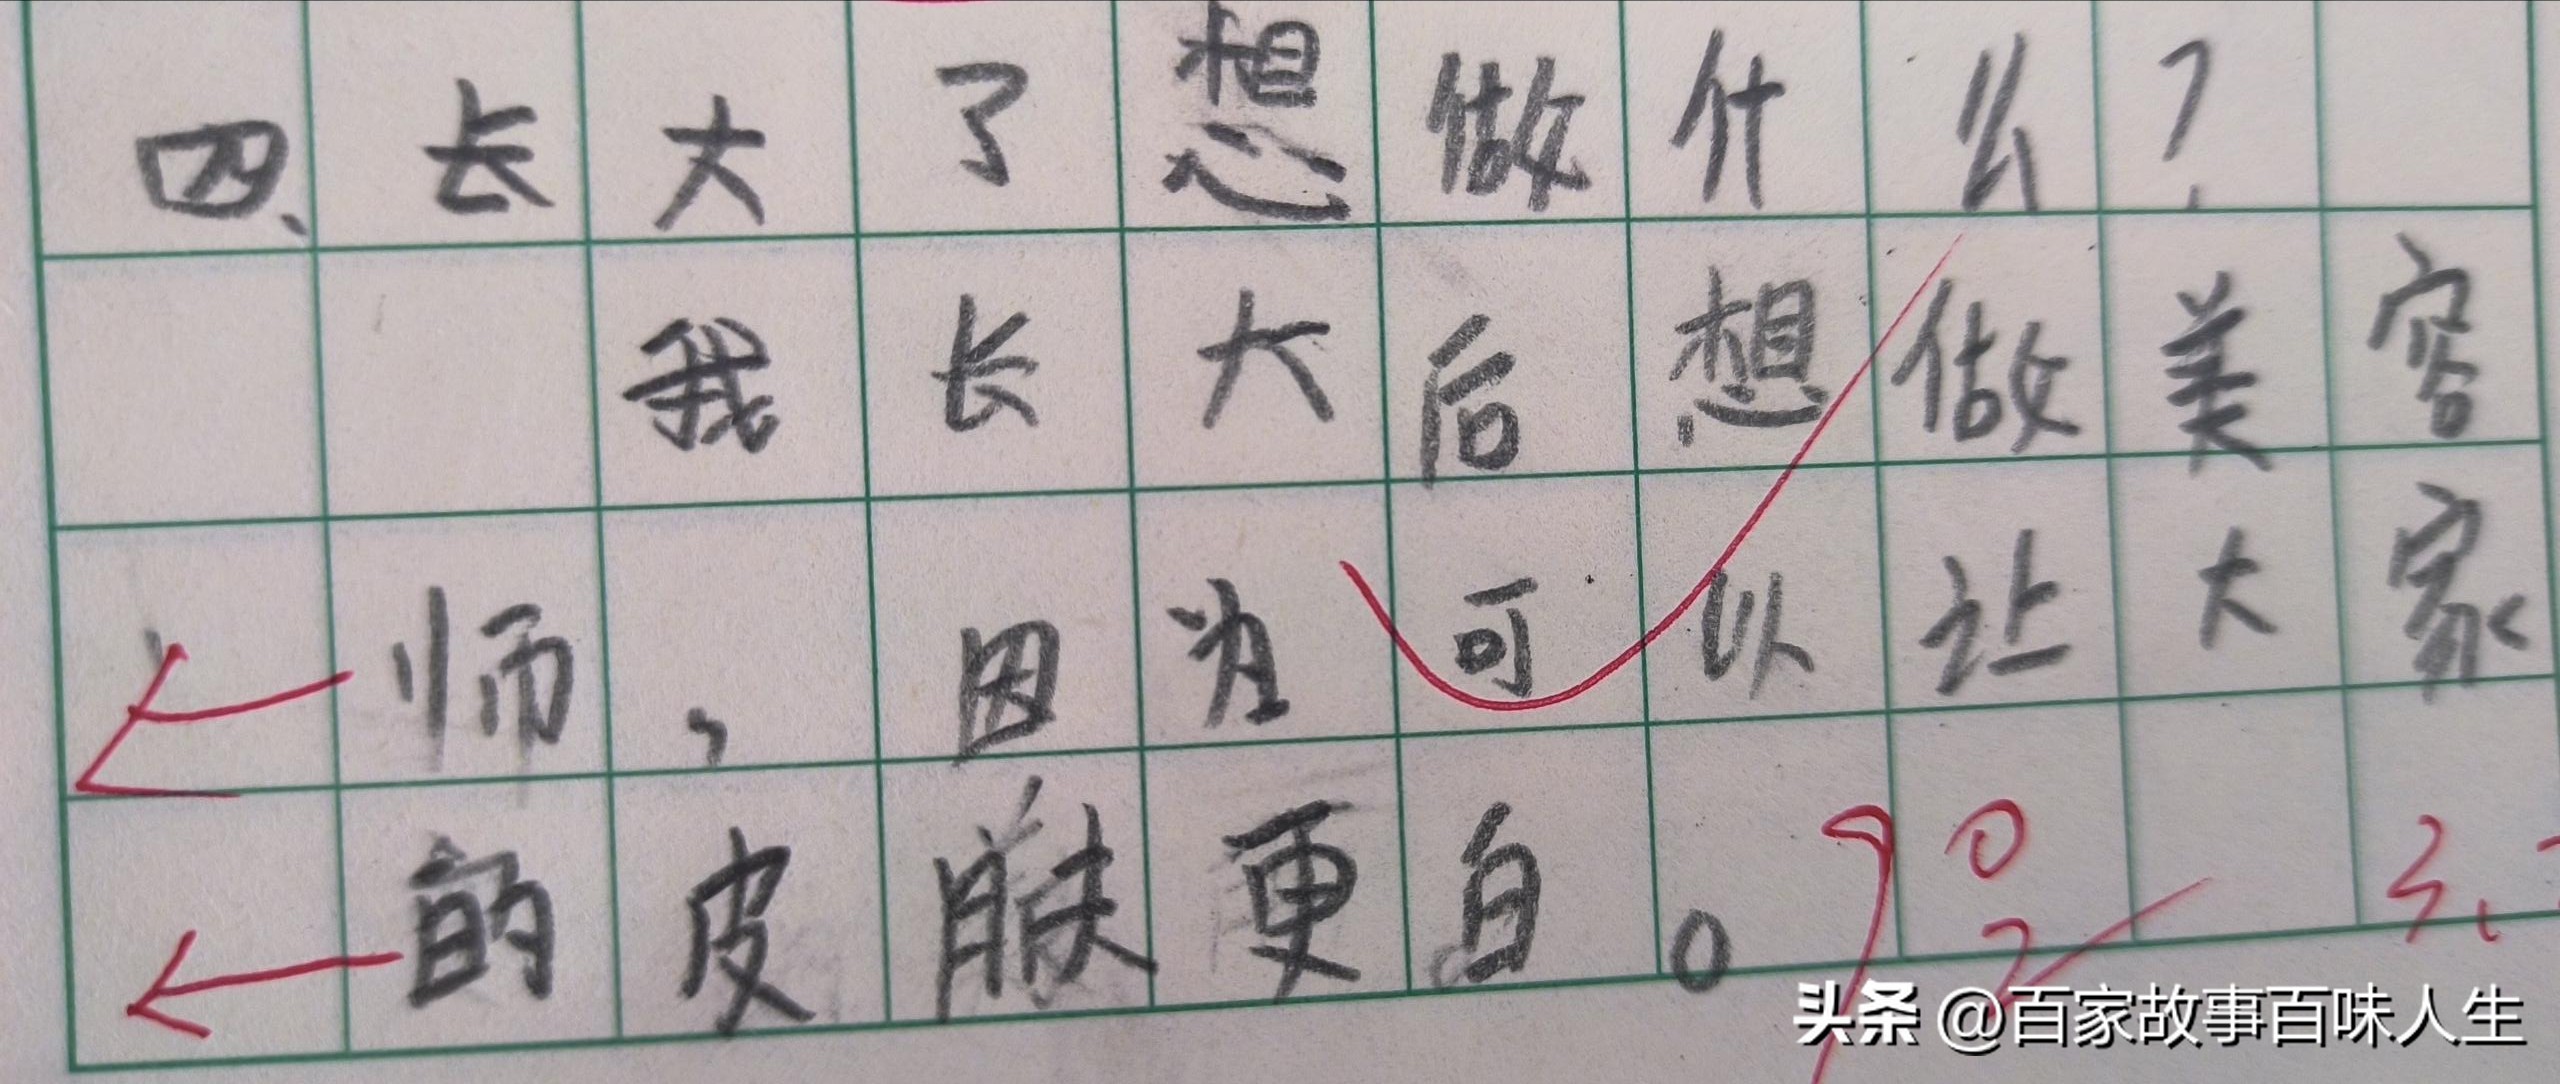 四、长大了想做什么?
我长大后想做美容
师,因为可以让大家
的皮肤更白。
头条 @百家故事百味人生